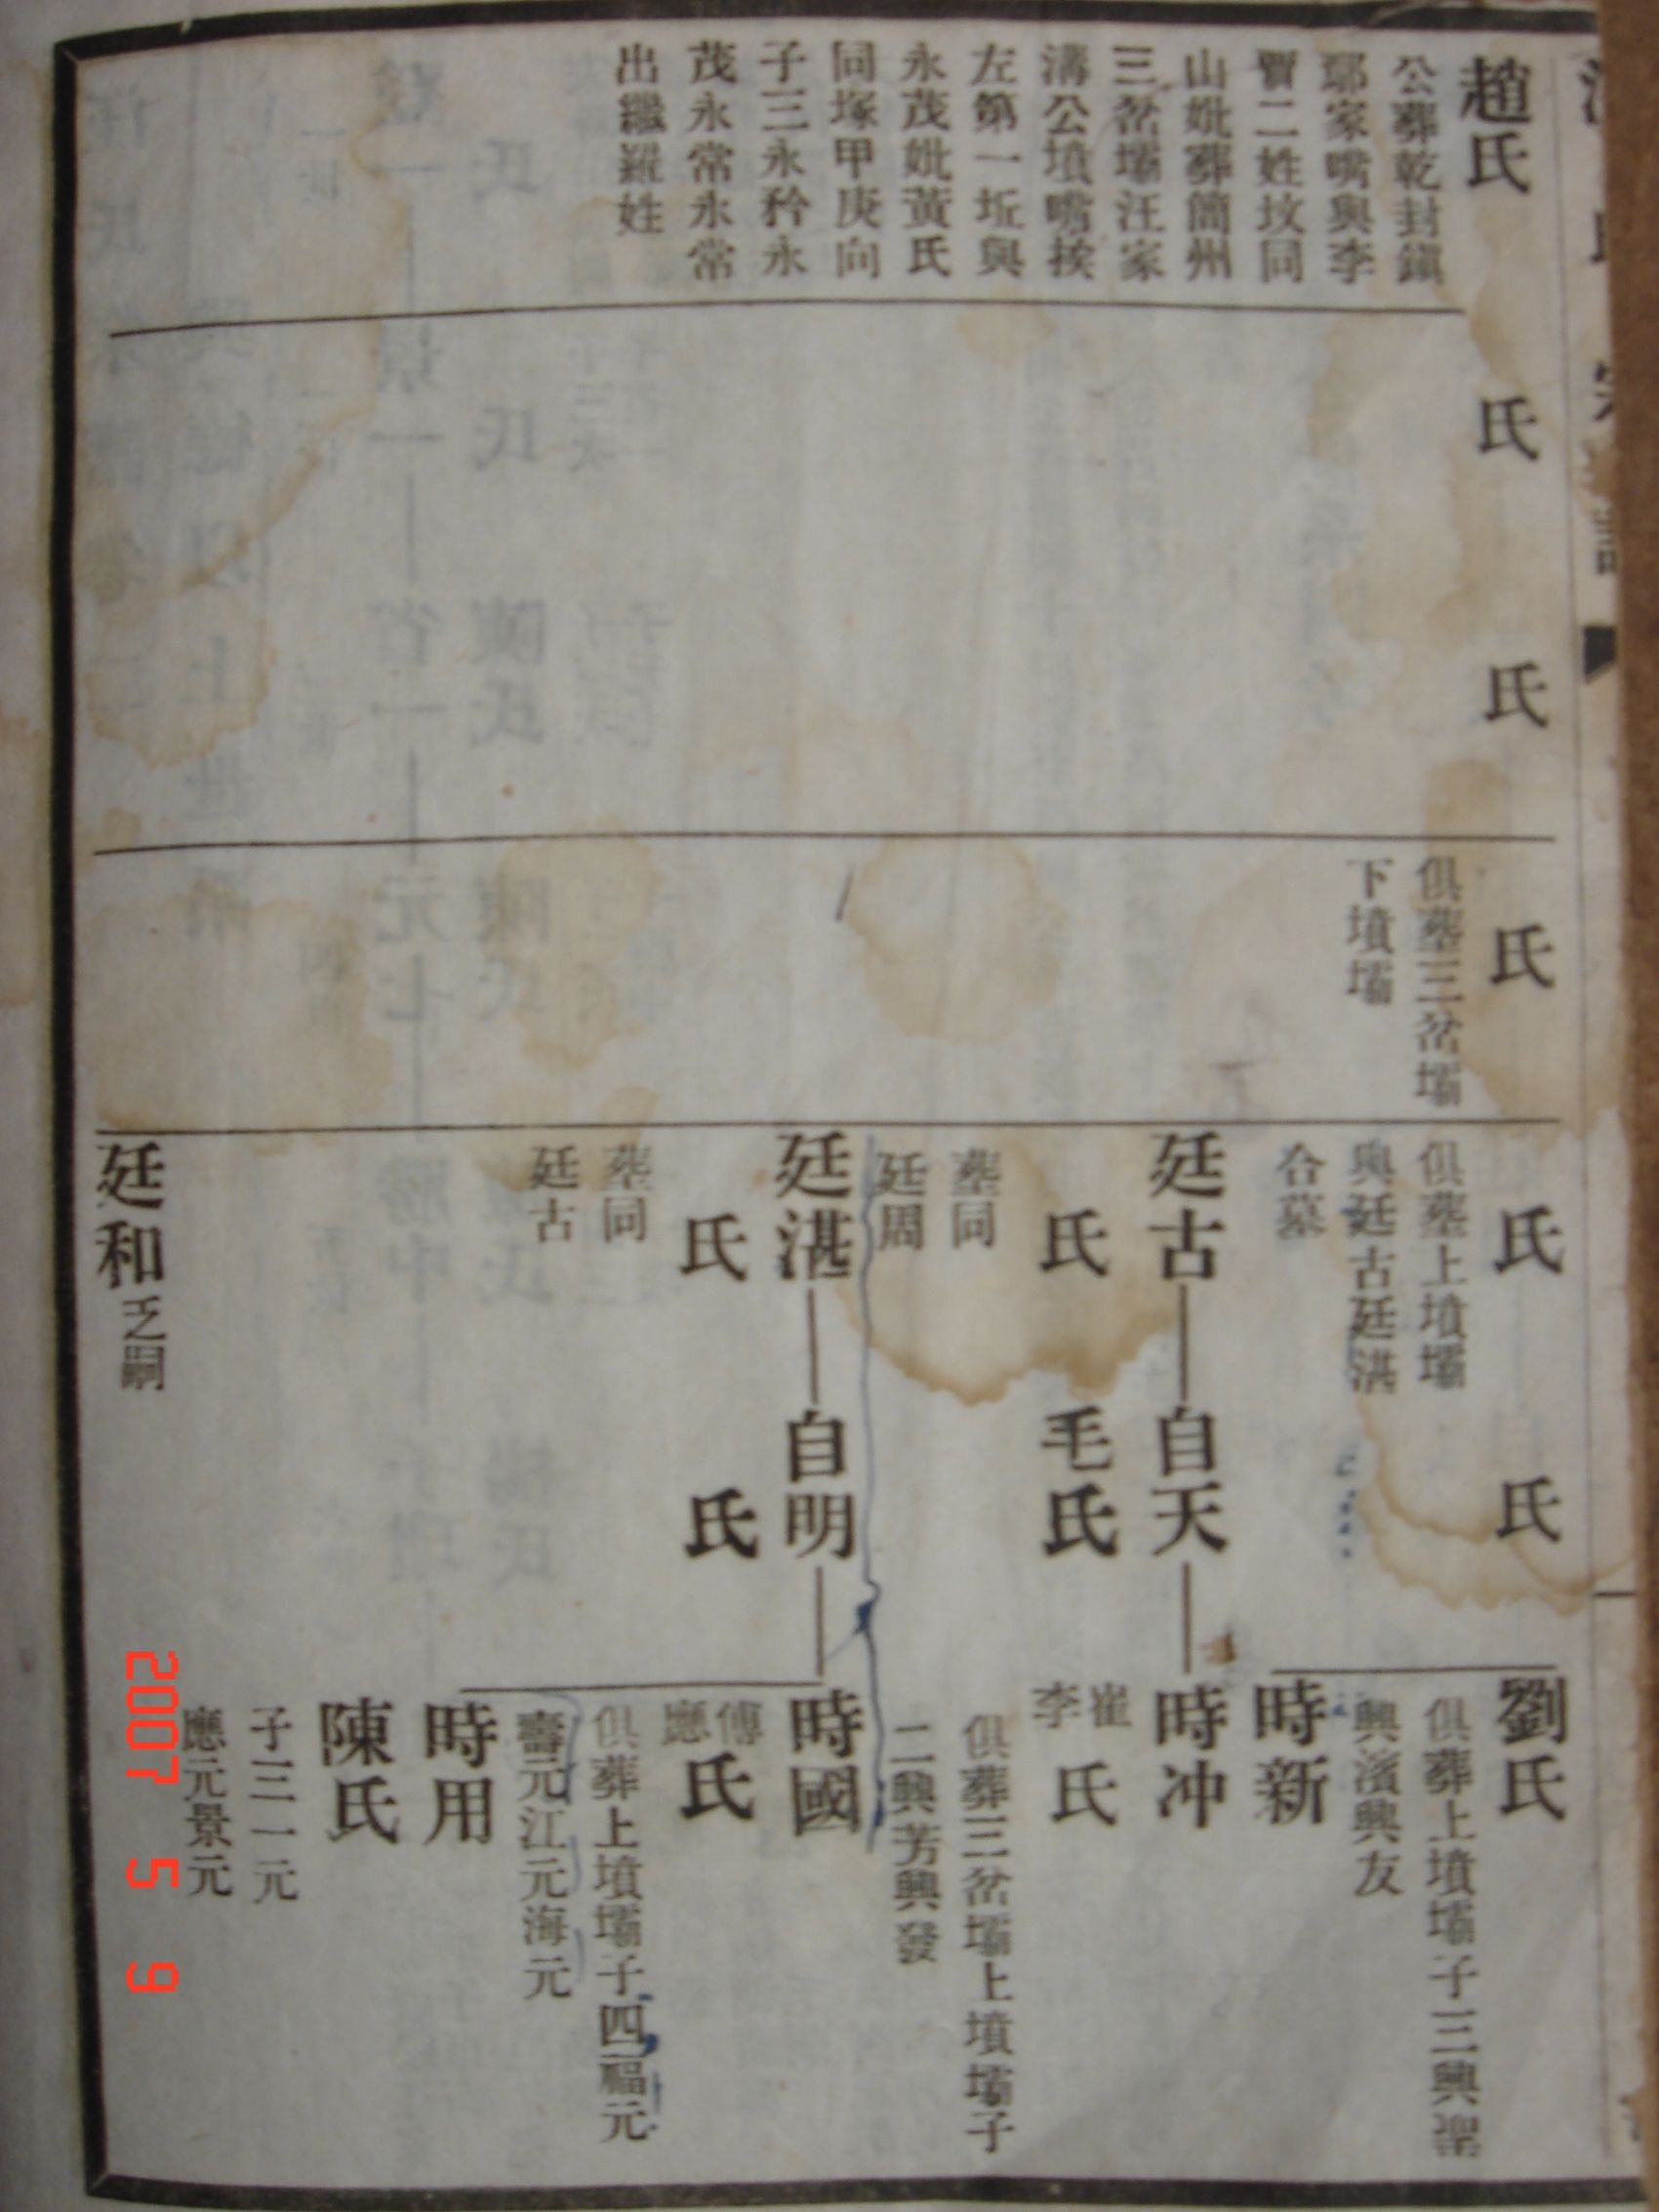 趙氏
公葬乾封鎮
鄢家嘴與李
賈二姓墳同
山妣葬簡州
三岔壩汪家
溝公墳嘴挨
左第一坵與
永茂妣黃氏
同塚甲庚向
子三永矜永
茂永常永常
出繼羅姓
氏
氏
氏
俱塟三岔壩
下墳壩
氏
俱塟上墳壩
與廷古廷湛
合墓
氏
劉氏
俱葬上墳壩子三興聖
興濱興友
時新
廷古
自天
時冲
氏
塟同
廷周
毛氏
崔李氏
俱葬三岔壩上墳壩子
二興芳興發
廷湛
自明
時國
氏
塟同
廷古
氏
傅應氏
俱葬上墳壩子四福元
壽元江元海元
時用
陳氏
子三一元
應元景元
廷和乏嗣
2007 5 9